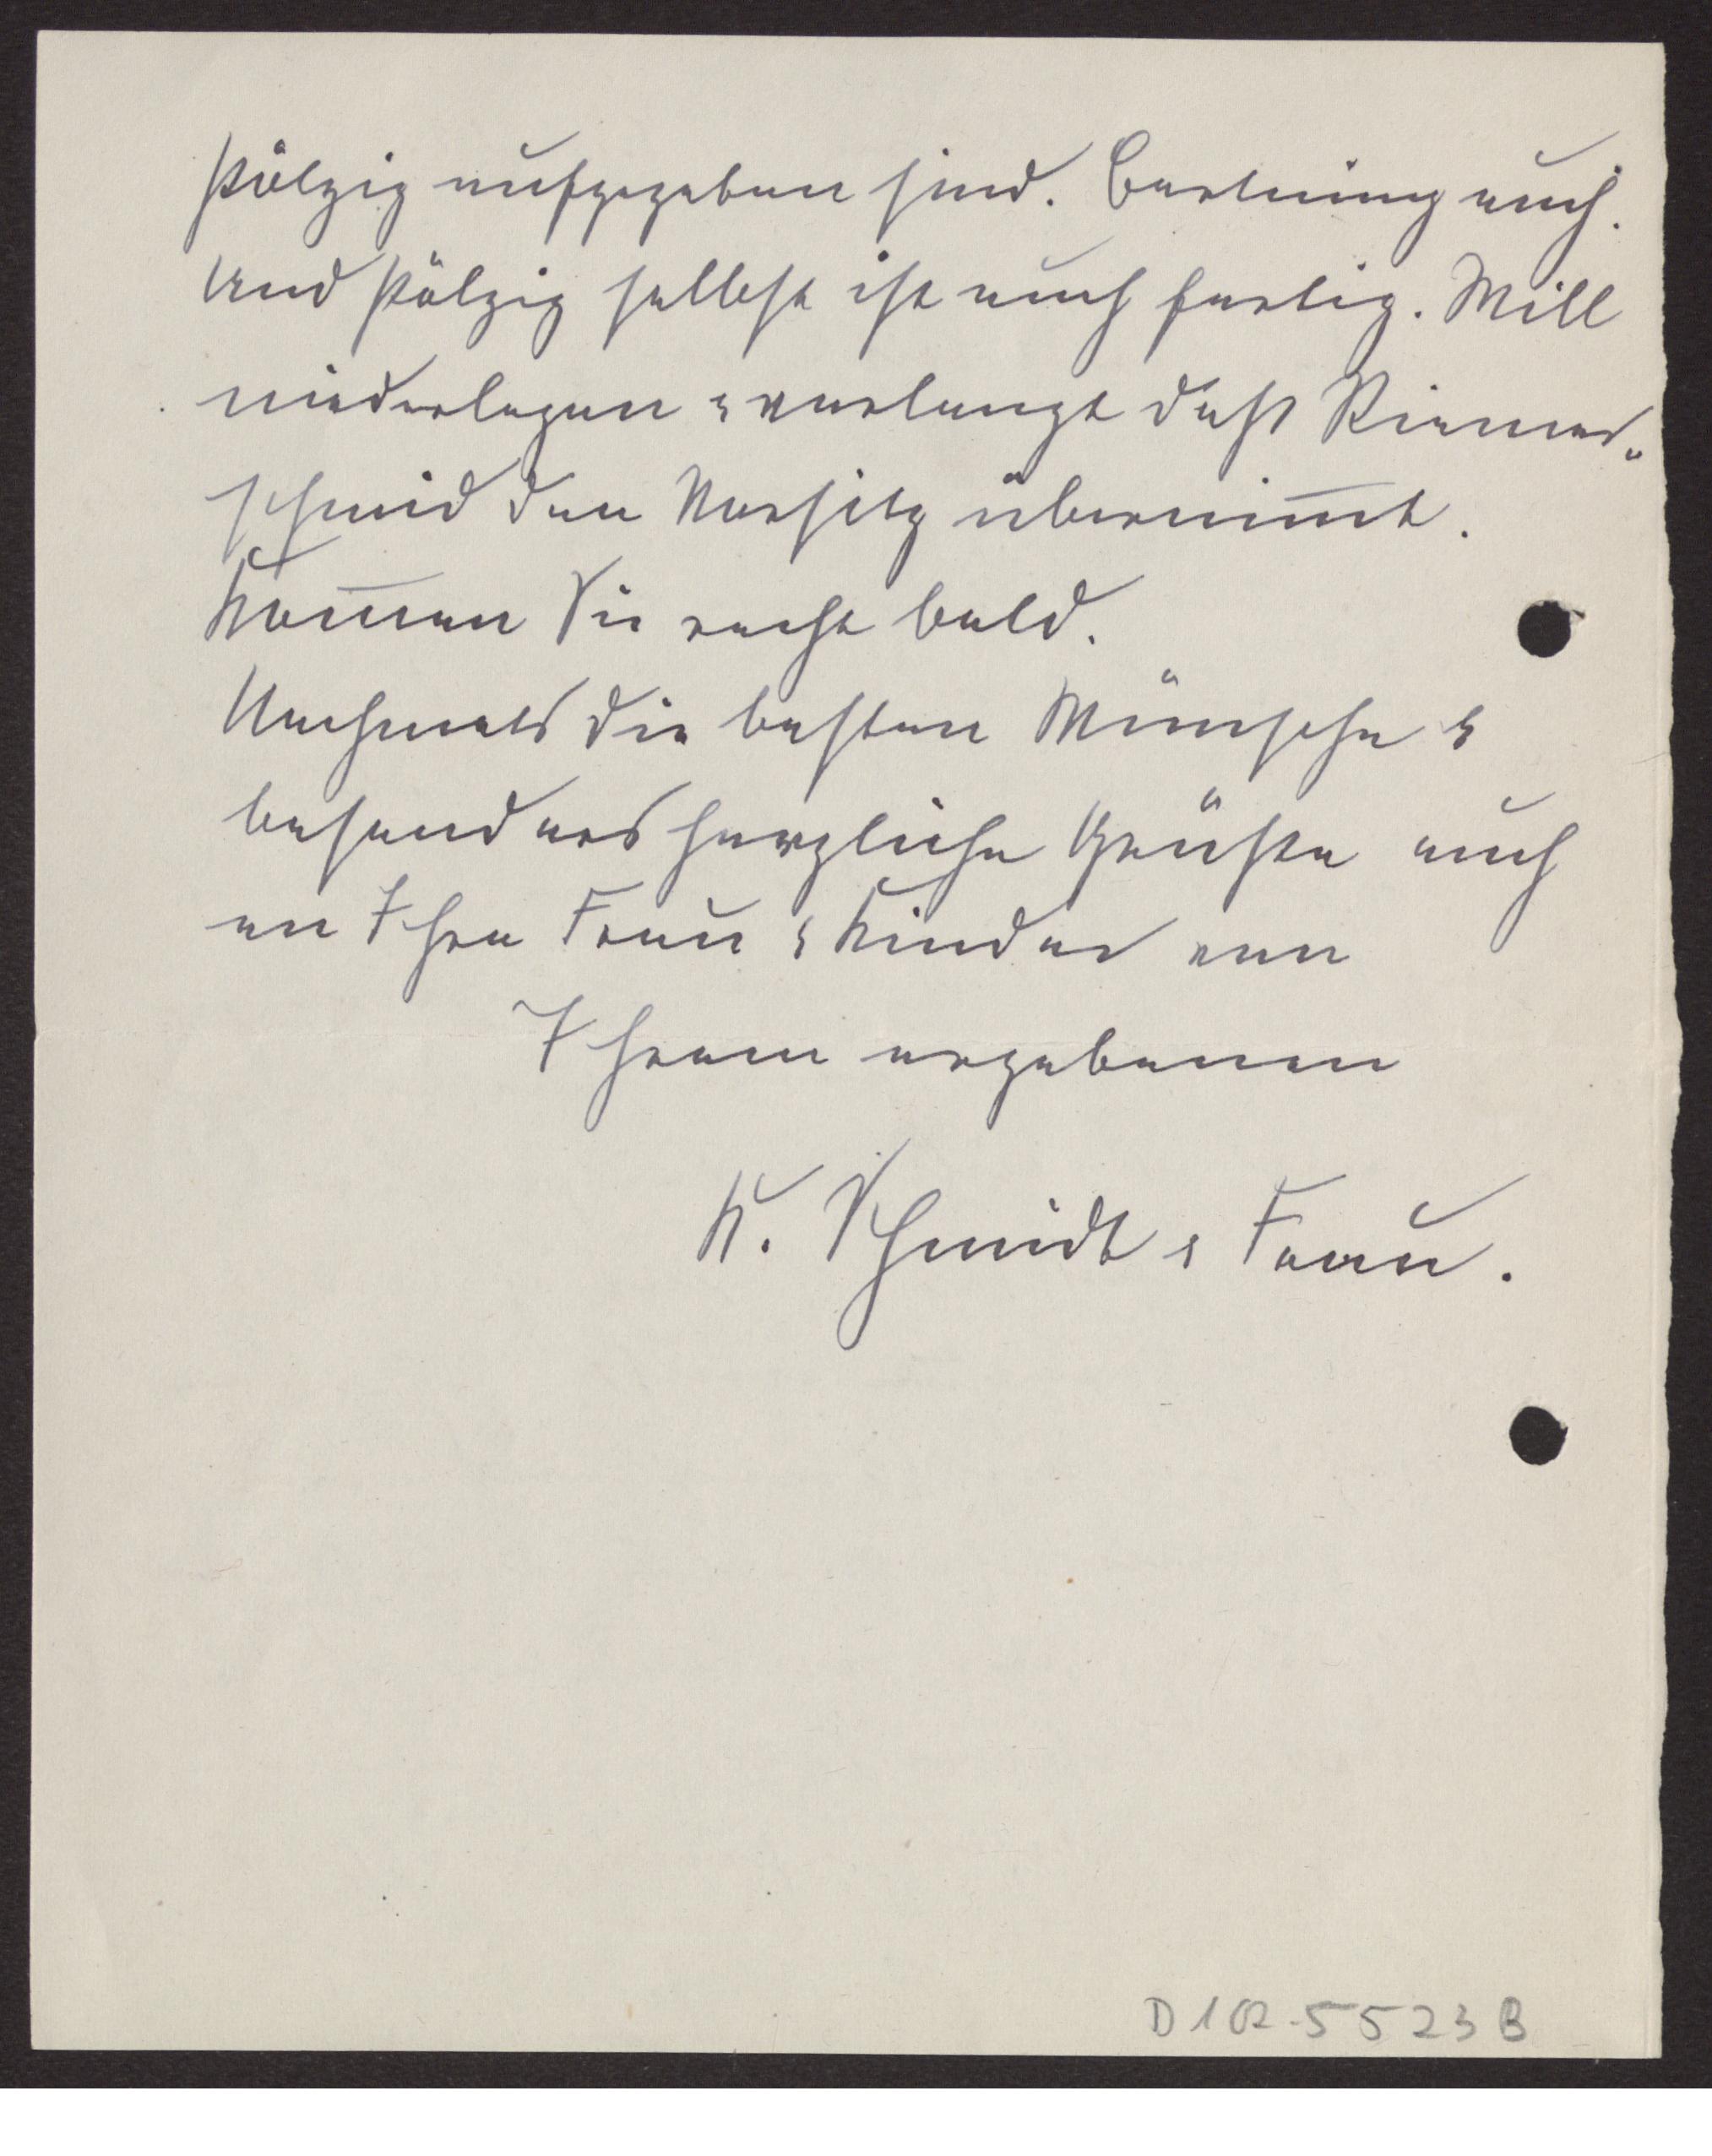 Pölzig aufgegeben sind. Bartning auch.
Und Pölzig selbst ist auch fertig. Will
niederlegen & verlangt daß Riemer„
schmid den Vorsitz übernim̅t.
Kom̅en Sie recht bald.
Nochmals die besten Wünsche &
besonders herzliche Grüße auch
an Ihre Frau & Kinder von
Ihrem ergebenen
K. Schmidt & Frau.
D 102-5523 B